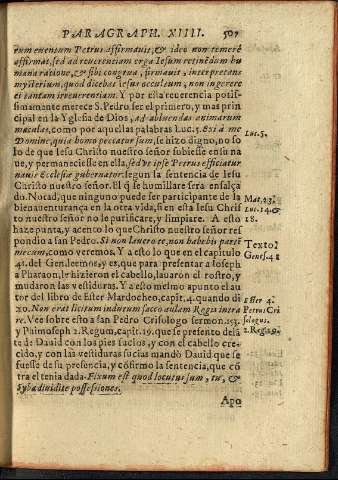 PARAGRAPH. XIIII. 507
rum euentum Petrus affirmauit, & ideo non temerè
affirmat, sed ad reuerentiam erga Iesum retinēdum hu
mana ratione, & sibi congrua, firmauit, interpretans
mysterium, quod dicebat iesus occulum, non ingerere
ei tantam irreuerentiam. Y por esta reuerencia potis-
simamente merece S. Pedro ser el primero, y mas prin
cipal en la Yglesia de Dios, ad abluendas animarum
maculas, como por aquellas palabras Luc. 5. Exi à me
Domine, quia homo peccator sum, se hizo digno, no so
lo de que Iesu Christo nuestro señor subiesse en su na
ue, y permaneciesse en ella, sed vt ipse Petrus efficiatur
nauis Ecclesiæ gubernator. segun la sentencia de Iesu
Christo nuestro señor. El q̃ se humillare sera ensalça
do. Notad, que ninguno puede ser participante de la
bienauenturança en la otra vida, si en esta Iesu Chris
to nuestro señor no le purificare, y limpiare. A esto
haze punta, y acento lo que Christo nuestro señor res
pondio a san Pedro. Si non lauero te, non habebis partē
mecum, como veremos. Y a esto lo que en el capitulo
41. del Gen. leemos, y es, que para presentar a Ioseph
a Pharaon, le hizieron el cabello, lauarō el rostro, y
mudaron las vestiduras. Y a esto mesmo apunto el au
tor del libro de Ester Mardocheo, capit. 4. quando di
xo. Non erat licitum indutum sacco aulam Regis intra
re. Vee sobre esto a san Pedro Crisologo sermon. 153.
y Phimoseph 2. Regum, capit. 19. que se presento delā
te de Dauid con los pies suzios, y con el cabello cre-
cido, y con las vestiduras suzias mandò Dauid que se
fuesse de su presencia, y cōfirmo la sentencia, que cō
tra el tenia dada. Fixum est quod locutus sum, tu, &
Syba diuidite possessiones.
Apo
Luc. 5.
Mat. 23.
Luc. 14. &
18.
Texto?
Genes. 41
Ester 4.
Petrus Cri
sologus.
2. Reg. 19.